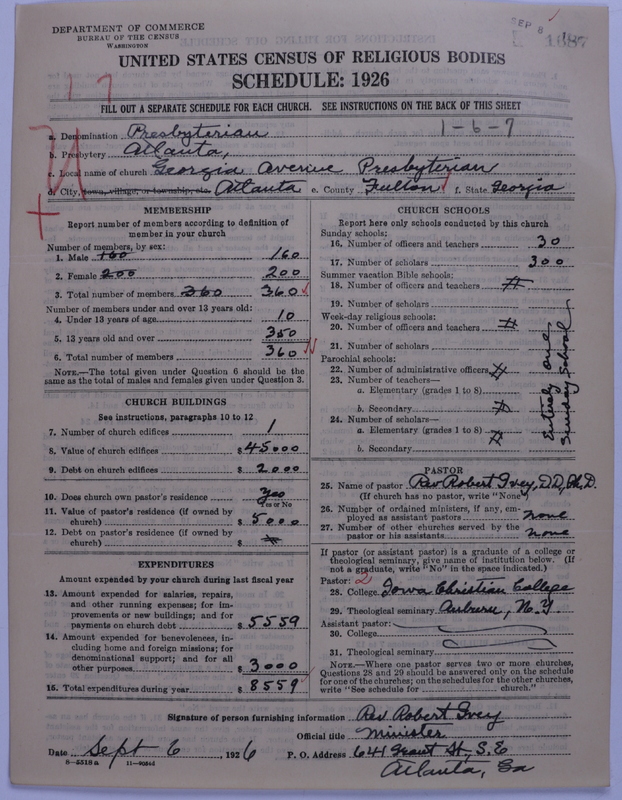 DEPARTMENT OF COMMERCE
BUREAU OF THE CENSUS
WASHINGTON
SEP 8
1687
UNITED STATES CENSUS OF RELIGIOUS BODIES
SCHEDULE: 1926
17
FILL OUT A SEPARATE SCHEDULE FOR EACH CHURCH. SEE INSTRUCTIONS ON THE BACK OF THIS SHEET
1-6-7
a. Denomination Presbyterian
b. Presbytery Atlanta,
c. Local name of church Georgia Avenue Presbyterian
d. City, town, village, or township, etc. Atlanta e. County Fulton f. State Georgia
MEMBERSHIP
Report number of members according to definition of member in your church
Number of members, by sex:
1. Male 160 160
2. Female 200 200
3. Total number of members 360 360
Number of members under and over 13 years old:
4. Under 13 years of age 10
5. 13 years old and over 350
6. Total number of members 360
NOTE.—The total given under Question 6 should be
same as the total of males and females given under Question 3.
CHURCH BUILDINGS
See instructions, paragraphs 10 to 12
7. Number of church edifices 1
8. Value of church edifices $45000
9. Debt on church edifices $2000
10. Does church own pastor's residence Yes
Yes or No
11. Value of pastor's residence (if owned by
church) $5000
12. Debt on pastor's residence (if owned by
church) $ #
EXPENDITURES
Amount expended by your church during last fiscal year
13. Amount expended for salaries, repairs,
and other running expenses; for im-
provements or new buildings; and for
payments on church debt $5559
14. Amount expended for benevolences, in-
cluding home and foreign missions; for
denominational support; and for all
other purposes $3000
15. Total expenditures during year $8559
CHURCH SCHOOLS
Report here only schools conducted by this church
Sunday schools:
16. Number of officers and teachers 30
17. Number of scholars 300
Summer vacation Bible schools:
18. Number of officers and teachers #
19. Number of scholars
Week-day religious schools:
20. Number of officers and teachers #
21. Number of scholars
Parochial schools:
22. Number of administrative officers #
23. Number of teachers—
a. Elementary (grades 1 to 8)
b. Secondary #
24. Number of scholars—
a. Elementary (grades 1 to 8) #
b. Secondary
Entirely one
Sunday School
PASTOR
25. Name of pastor Rev Robert Ivey, DD, Ph.D.
(If church has no pastor, write "None")
26. Number of ordained ministers, if any, em-
ployed as assistant pastors none
27. Number of other churches served by the
pastor or his assistants none
If pastor (or assistant pastor) is a graduate of a college or
theological seminary, give name of institution below. (If
not a graduate, write "No" in the space indicated.)
Pastor: 2
28. College Iowa Christian College
29. Theological seminary Auburn, N.Y
Assistant pastor:
30. College
31. Theological seminary
NOTE.—Where one pastor serves two or more churches,
Questions 28 and 29 should be answered only on the schedule
for one of the churches; on the schedules for the other churches,
write "See schedule for church."
Signature of person furnishing information Rev Robert Ivey
Official title Minister
Date Sept 6, 1926 P. O. Address 641 Grant St, S.E
8-5518a
Atlanta, Ga